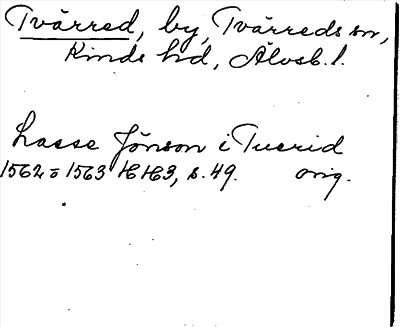 Tvärred, by, Tvärreds sn,
Kinds hd, Älvsb. l.
Lasse Jönson i Tuerid
1562 o 1563 HH3, s. 49. orig.